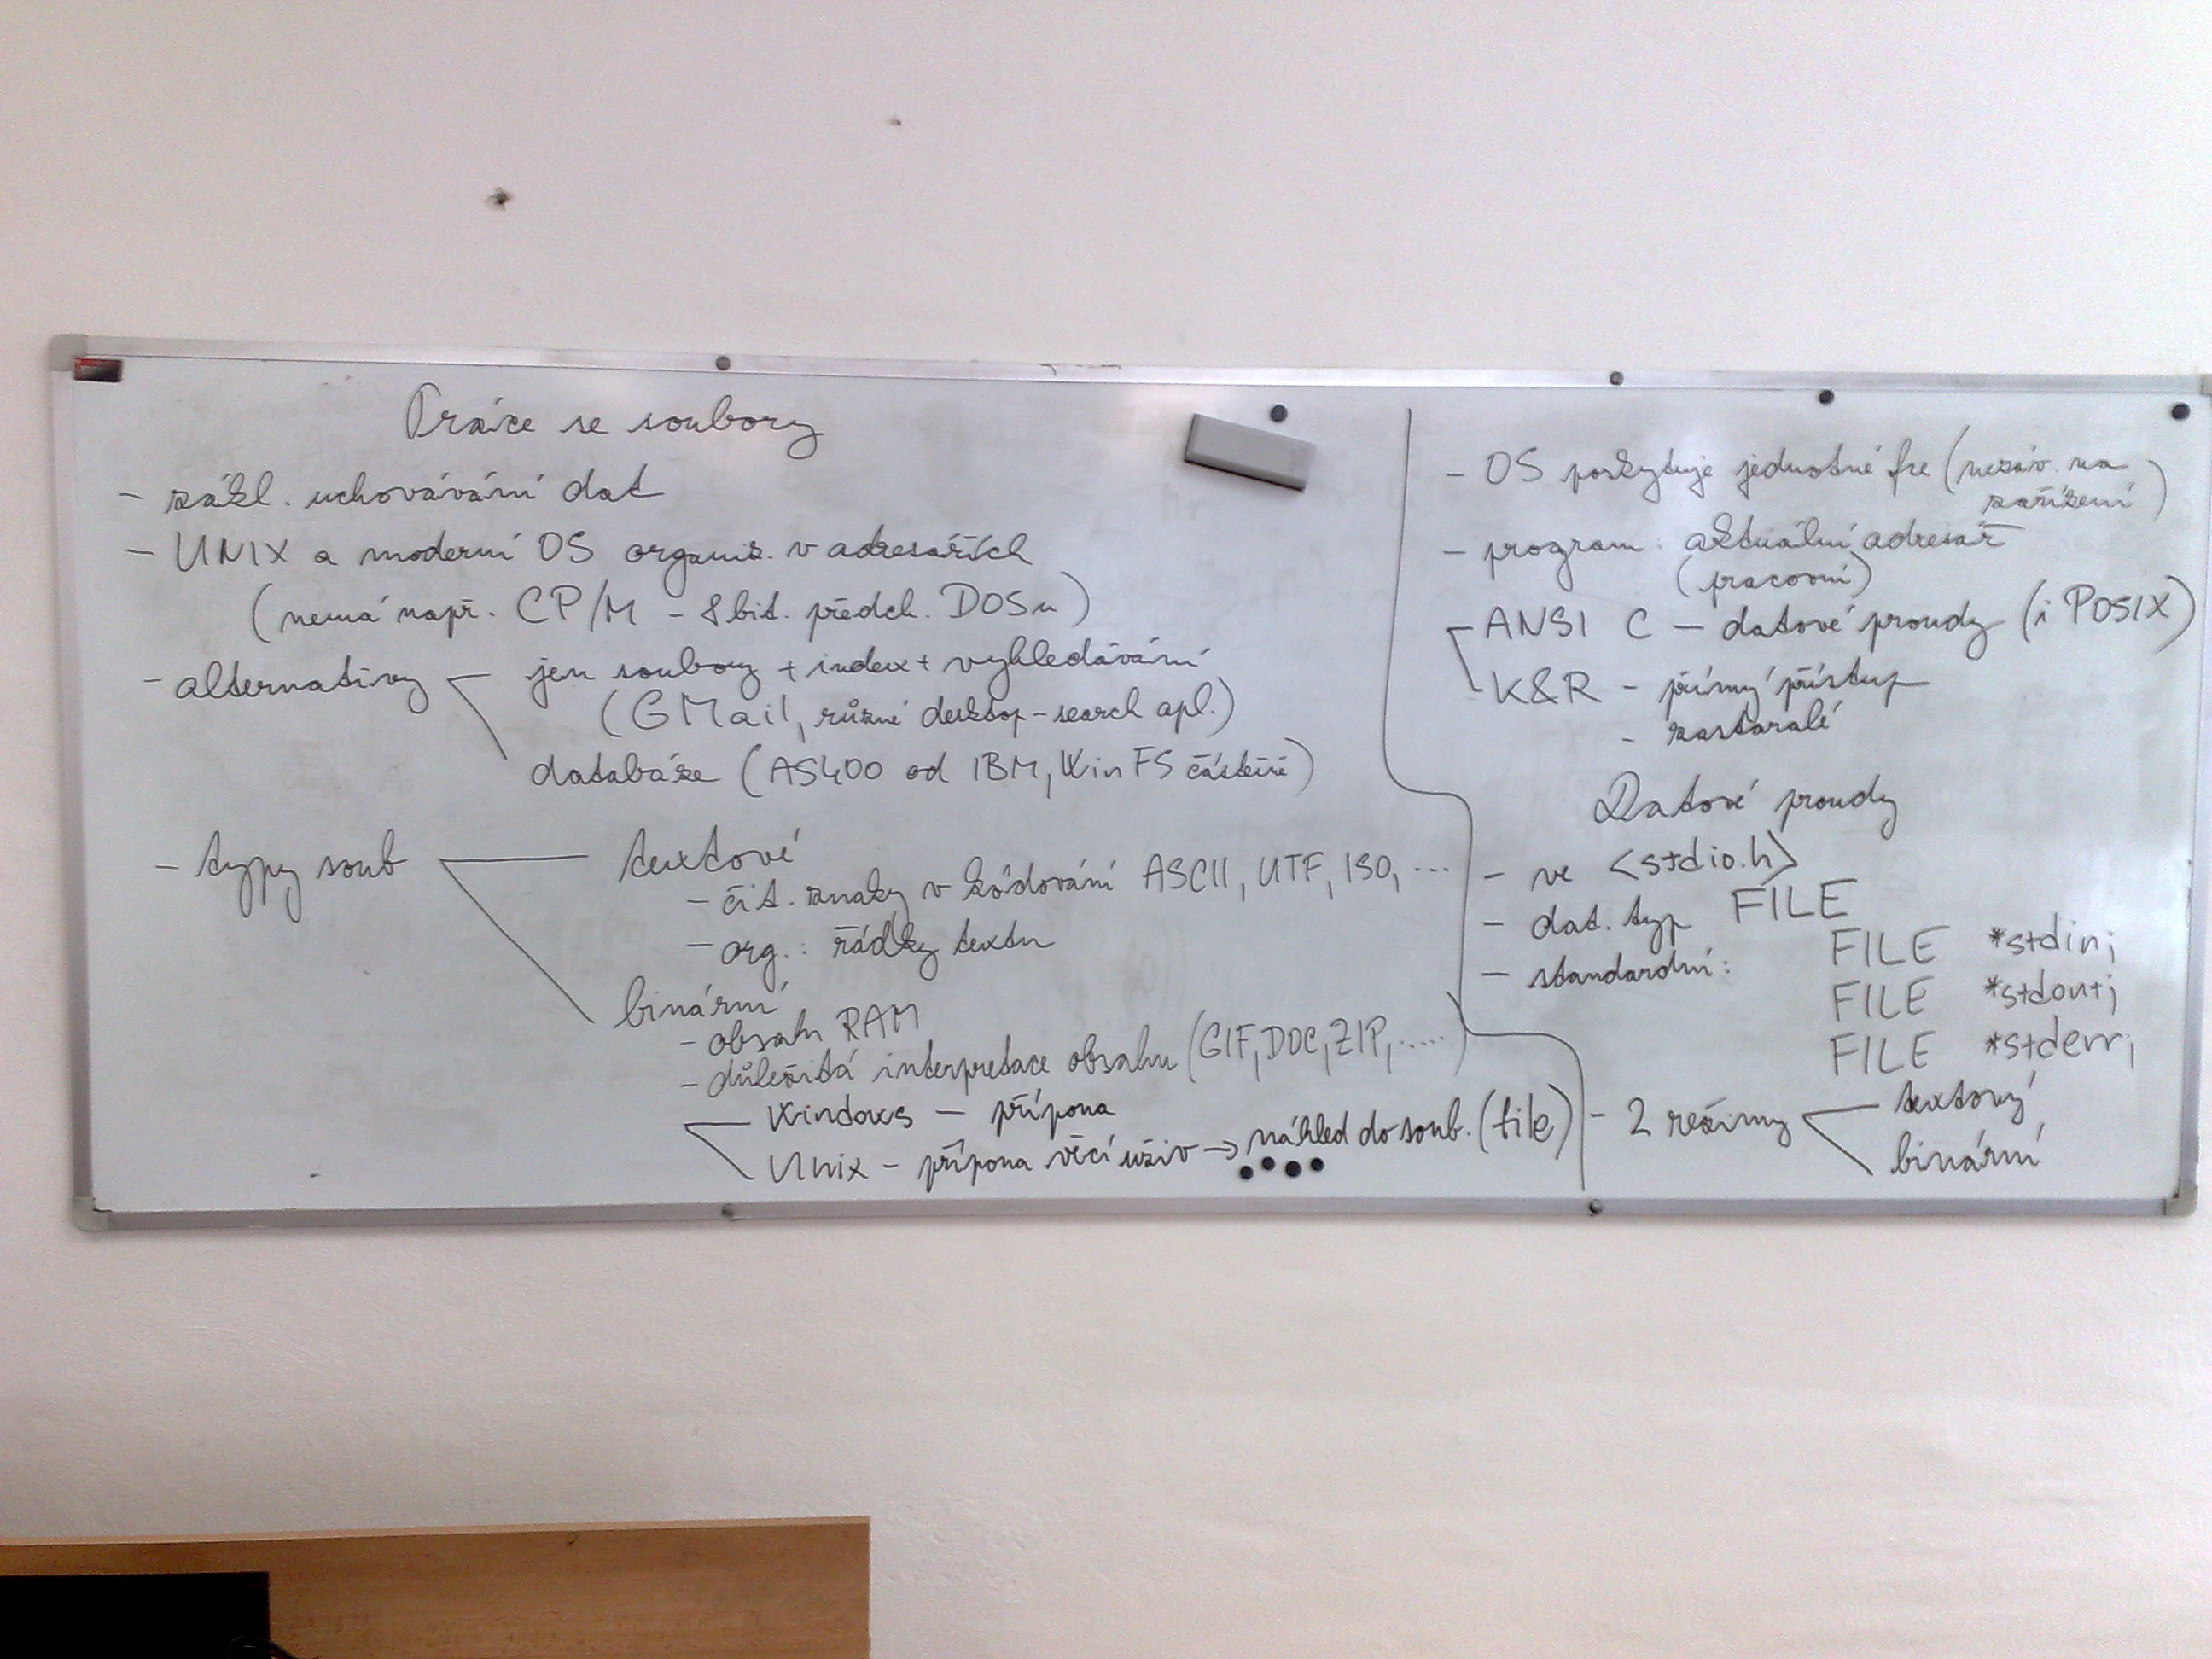 Práce se soubory
- zákl. uchovávání dat
- UNIX a moderní OS organiz. v adresářích
(nemá např. CP/M - 8bit. předch. DOSu)
- alternativy
jen soubory + index + vyhledávání
(GMail, různé desktop-search apl.)
databáze (AS400 od IBM, WinFS částečně)
- typy soub
textové
- čit. znaky v kódování ASCII, UTF, ISO, ...
- org.: řádky textu
binární
- obsah RAM
- důležitá interpretace obsahu (GIF, DOC, ZIP, .....)
Windows - přípona
Unix - přípona věcí uživ → náhled do soub. (file)
- OS poskytuje jednotné fce (nezáv. na
zařízení)
- program: aktuální adresář
(pracovní)
- ANSI C - datové proudy (i POSIX)
- K&R - přímý přístup
- zastaralé
Datové proudy
- ve <stdio.h>
- dat. typ FILE
- standardní: FILE *stdin;
FILE *stdout;
FILE *stderr;
- 2 režimy
textový
binární